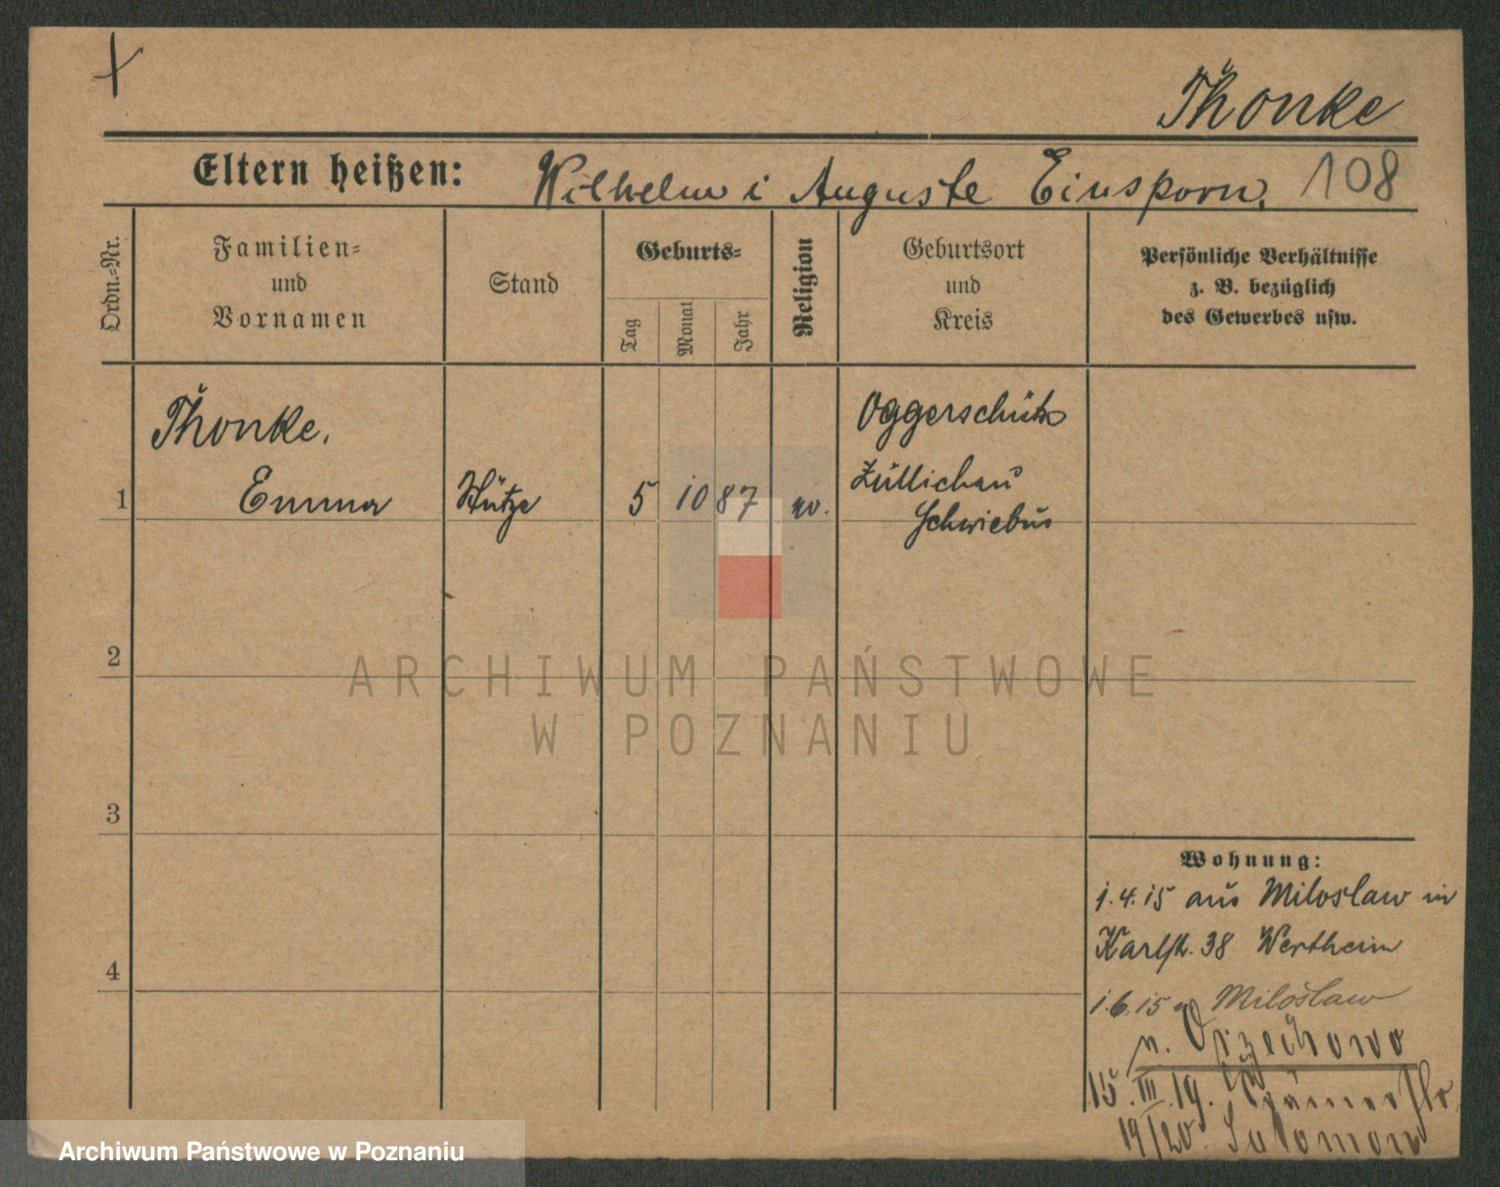 Thonke
Eltern heißen: Wilhelm i Auguste Einsporn. 108
Ordn.=Nr.
Familien=
und
Vornamen
Stand
Geburts=
Tag
Monat
Jahr
Religion
Geburtsort
und
Kreis
Persönliche Verhältnisse
z. B. bezüglich
des Gewerbes usw.
Thonke,
1 Emma Stütze 5 10 87
Oggerschütz
Züllichau
Schwiebus
2
3
4
Wohnung:
1.4.15 aus Miloslaw in
Karlstr. 38 Wertheim
1.6.15 n Miloslaw
n. Orzechowo
15.III.19.
19/20. Salomon
ARCHIWUM PAŃSTWOWE
W POZNANIU
Archiwum Państwowe w Poznaniu